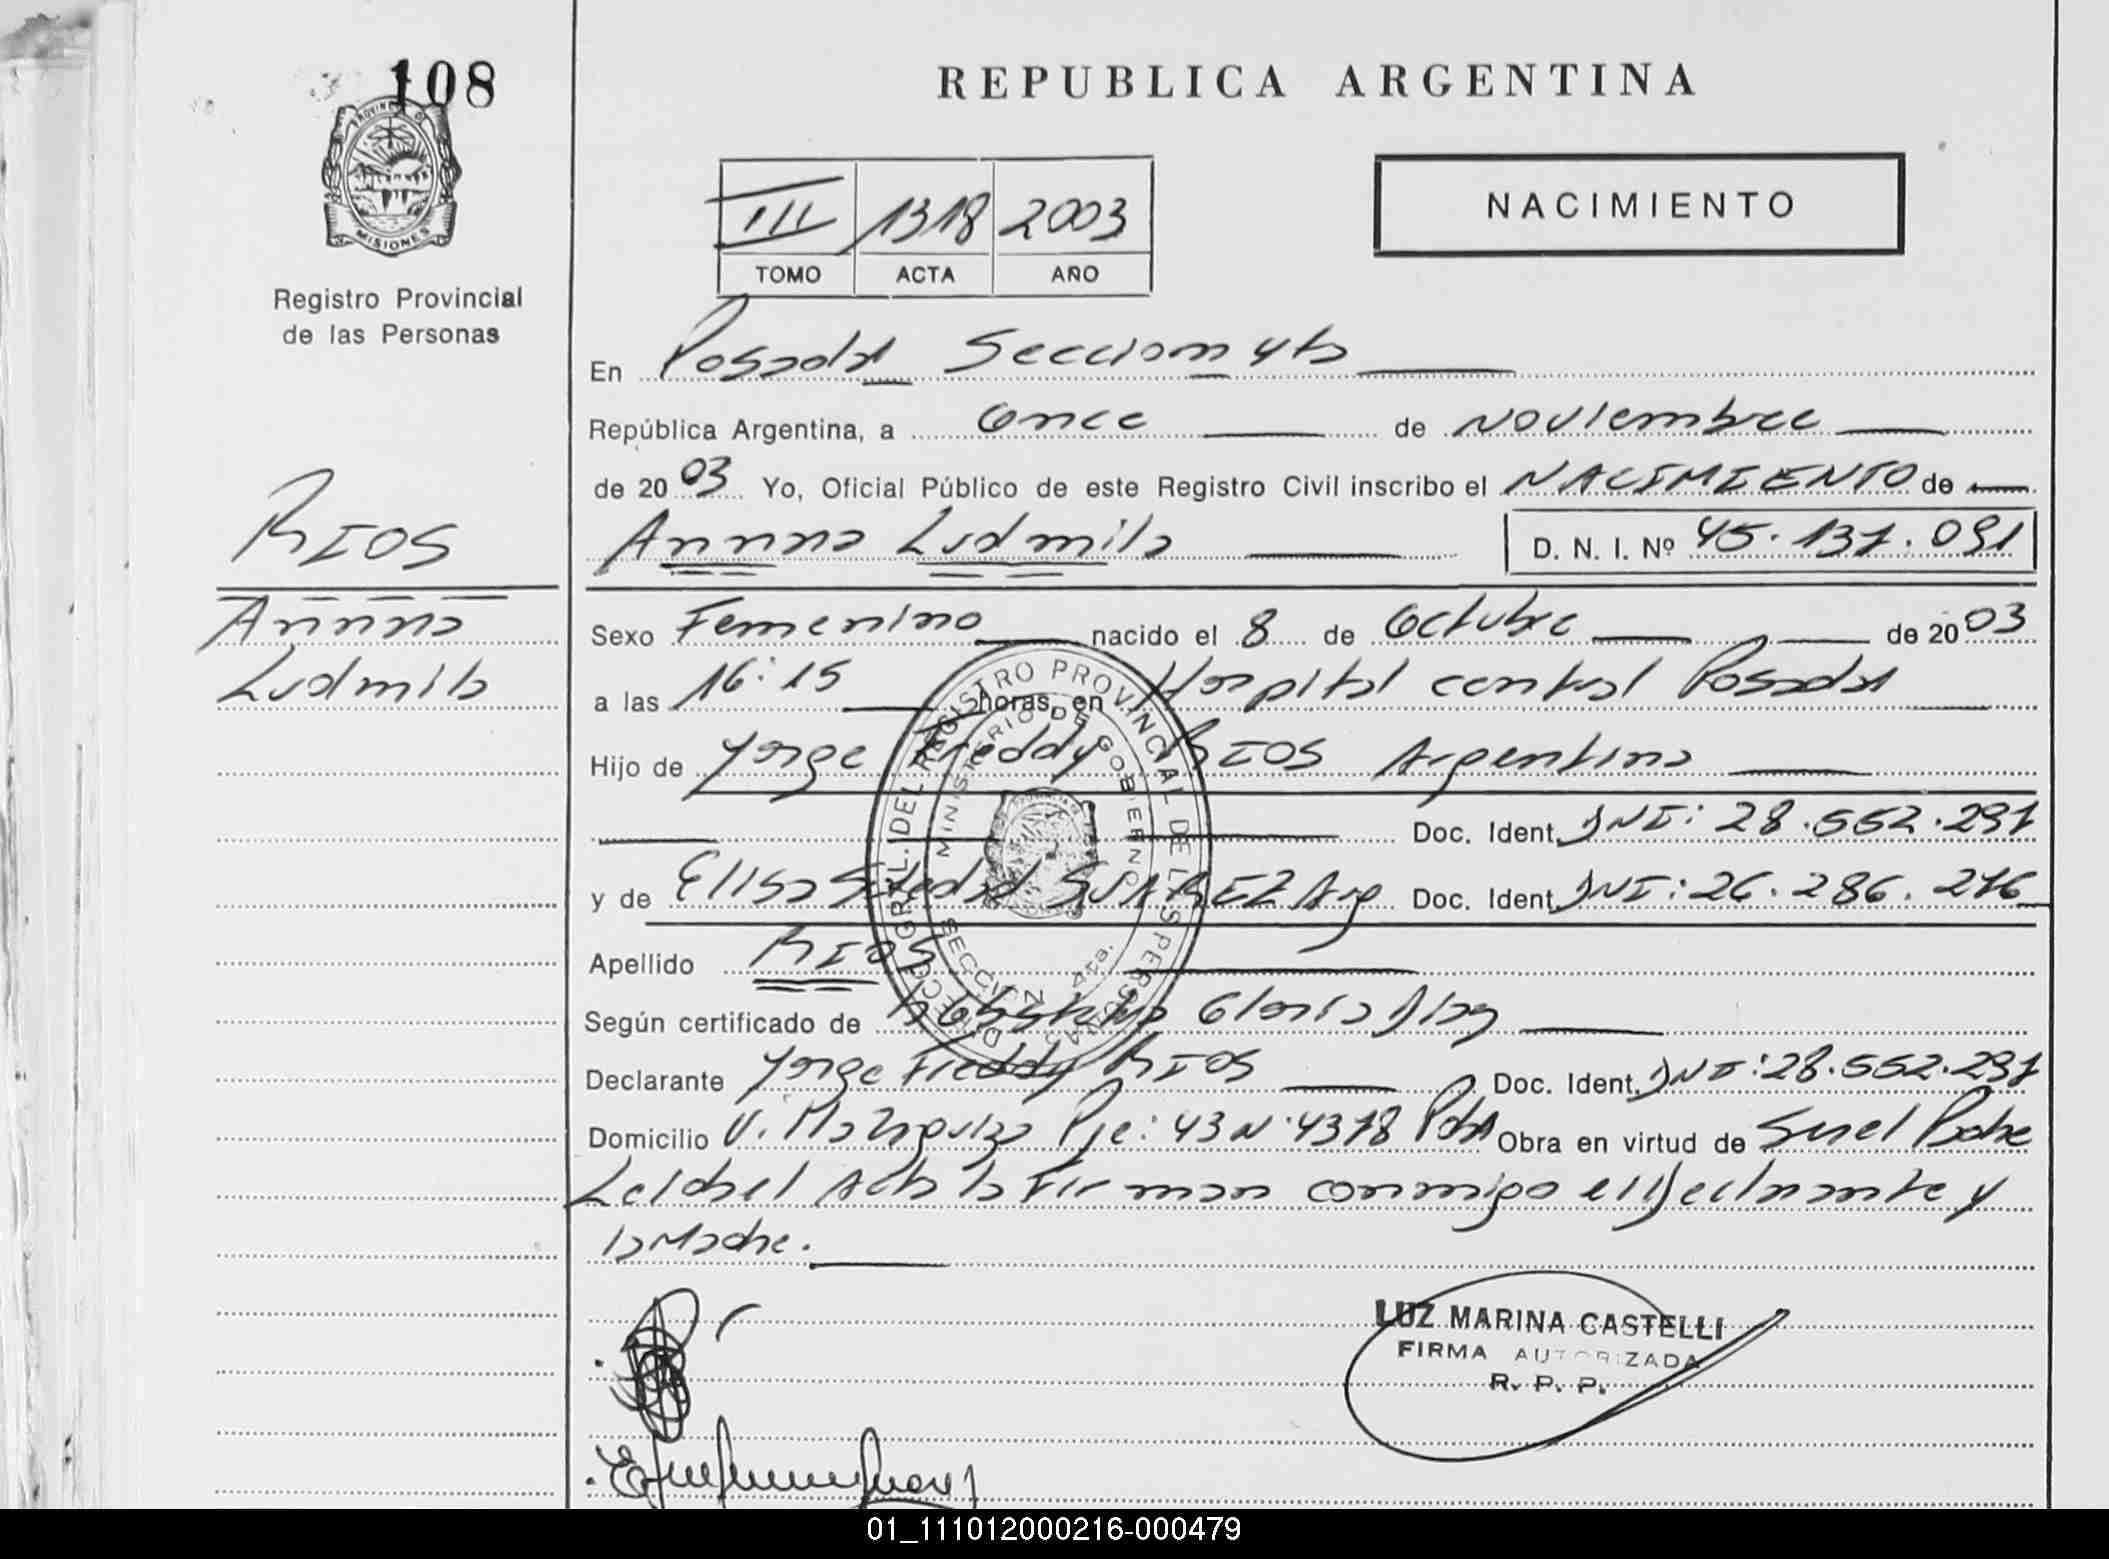 108
PROVINCIA DE
MISIONES
Registro Provincial
de las Personas
REPUBLICA ARGENTINA
III 1318 2003
TOMO ACTA AÑO
NACIMIENTO
En Posadas Seccion 4ta
República Argentina, a Once de Noviembre
de 2003 Yo, Oficial Público de este Registro Civil inscribo el NACIMIENTO de
Ludmila
D. N. I. Nº 45.137.091
RIOS
Ludmila
Sexo Femenino nacido el 8 de Octubre de 2003
a las 16:15 horas, en Hospital central Posadas
Hijo de Jorge Freddy RIOS Argentino
Doc. Ident. DNI: 28.552.297
y de Elisa Soledad SUAREZ Arg Doc. Ident. DNI: 26.286.276
Apellido RIOS
Según certificado de Obstetra Gloria Diaz
Declarante Jorge Freddy RIOS Doc. Ident. DNI: 28.552.297
Domicilio Pje: 43 N° 4378 Pdas Obra en virtud de Ser el Padre
Leida el Acta la Firman conmigo el Declarante y
la Madre.
DIRECC. GRAL. DEL REGISTRO PROVINCIAL DE LAS PERSONAS
MINISTERIO DE GOBIERNO
SECCION 4ta.
LUZ MARINA CASTELLI
FIRMA AUTORIZADA
R. P. P.
01_111012000216-000479